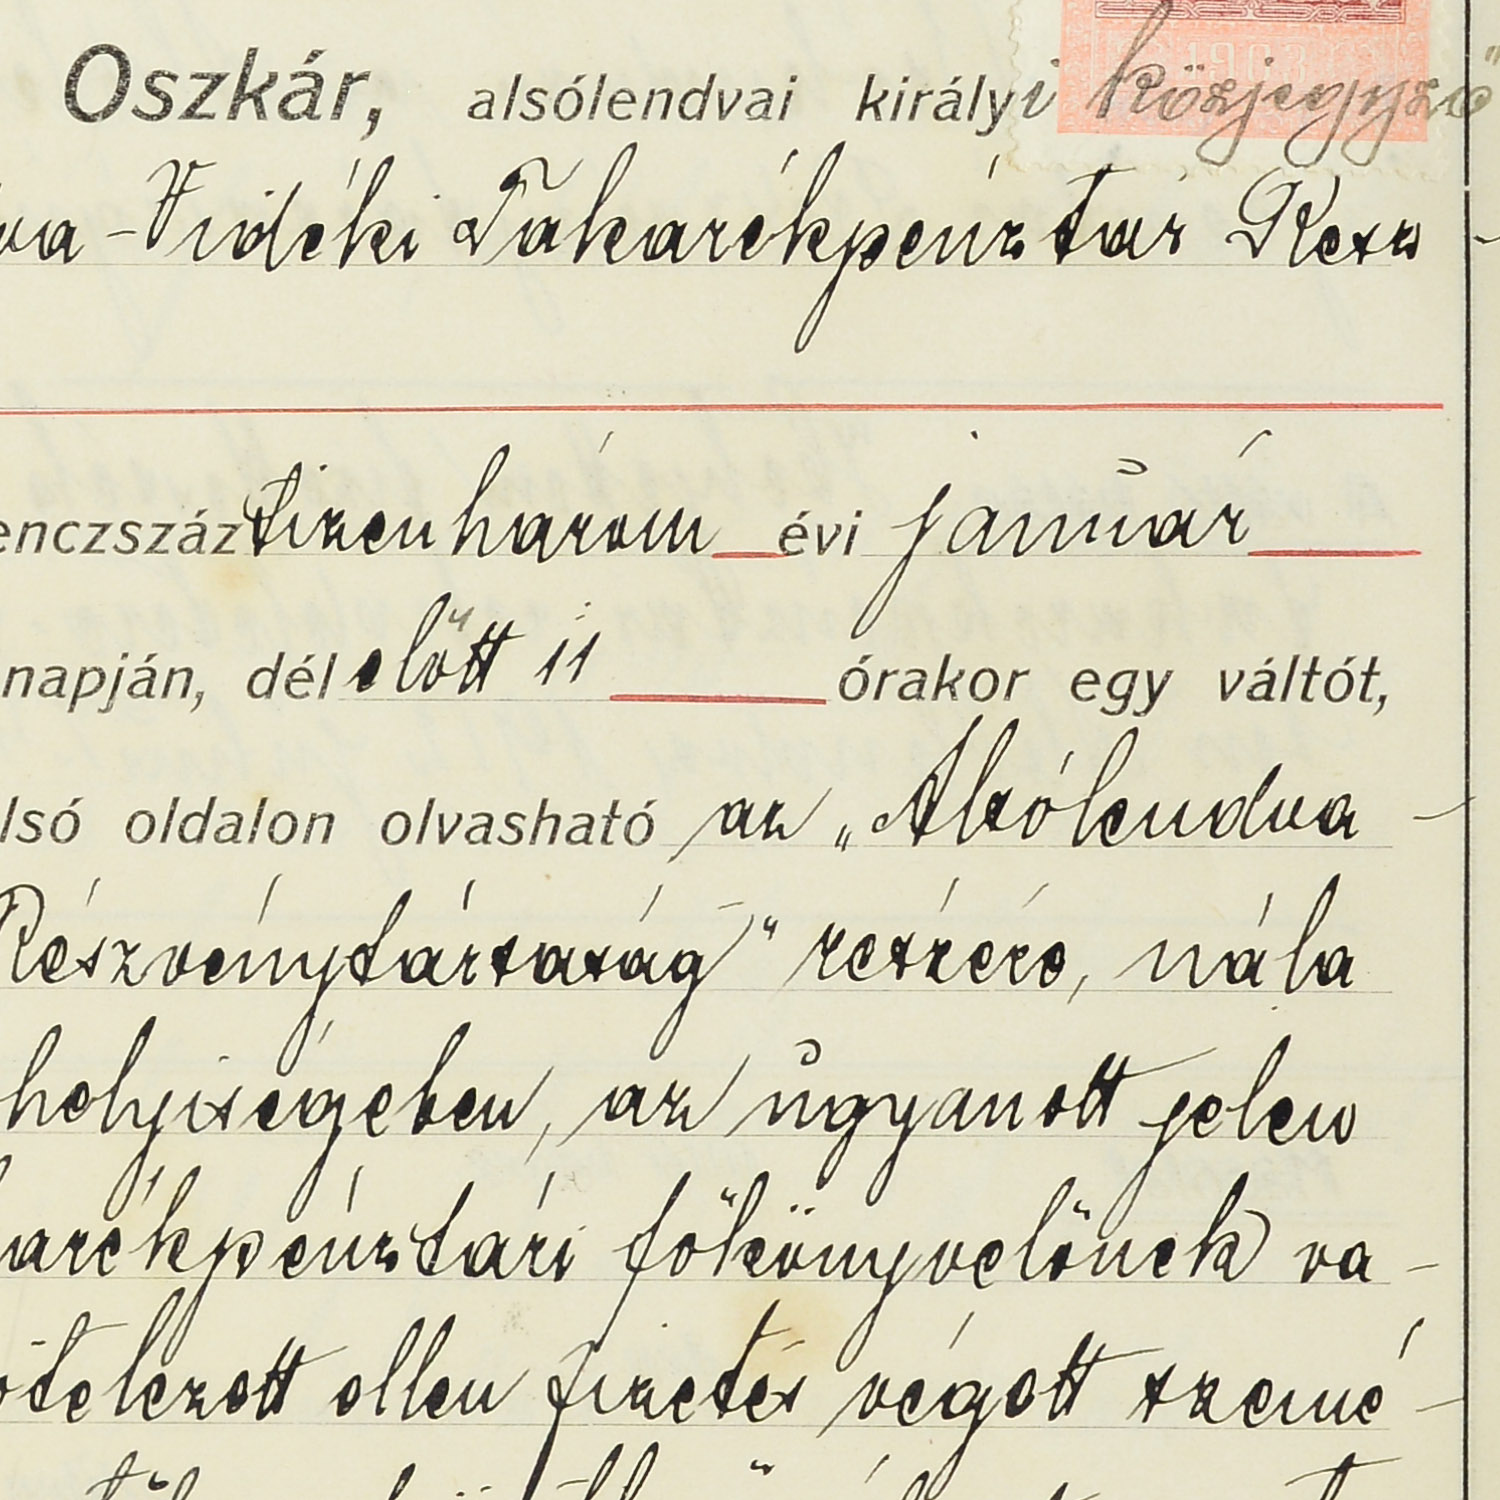 Oszkár, alsólendvai királyi közjegyző
va-Vidéki Takarékpénztár Rész-
enczszáz tizenhárom évi január
napján, délelőtt 11 órakor egy váltót,
lsó oldalon olvasható az „Alsólendva-
Részvénytársaság" részére, nála
helyiségében, az ugyanott jelen
arékpénztári főkönyvelőnek va-
ötelezett ellen fizetés végett szemé-